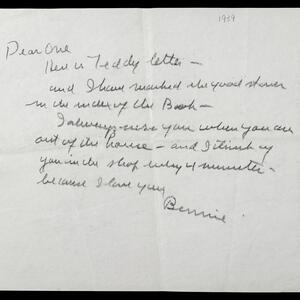 1939
Dear One
Here is Teddy letter —
and I have marked the good stories
in the index of the Book —
I always miss you when you are
out of the house — and I think of
you in the shop every 4 minutes —
because I love you
Bennie